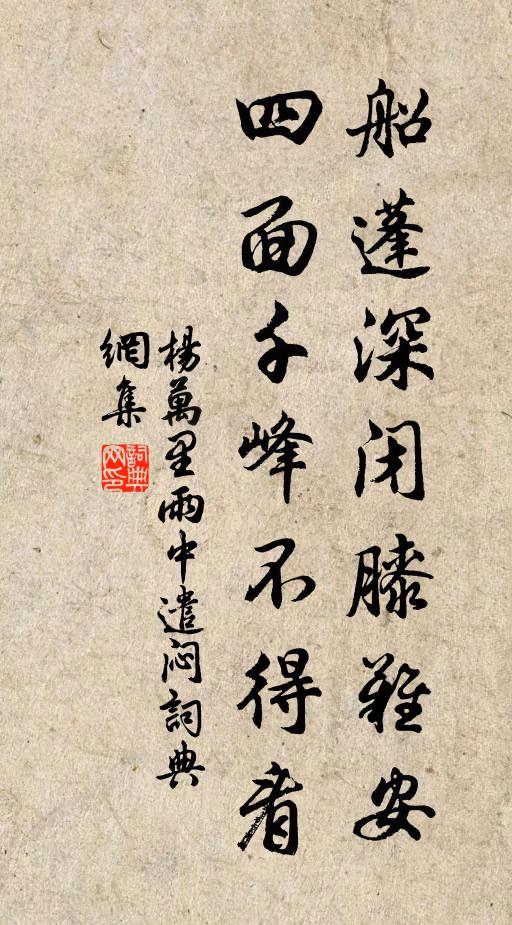 船蓬深闭膝難安
四面千峰不得看
楊萬里雨中遣闷詞典
網集
詞典
网印